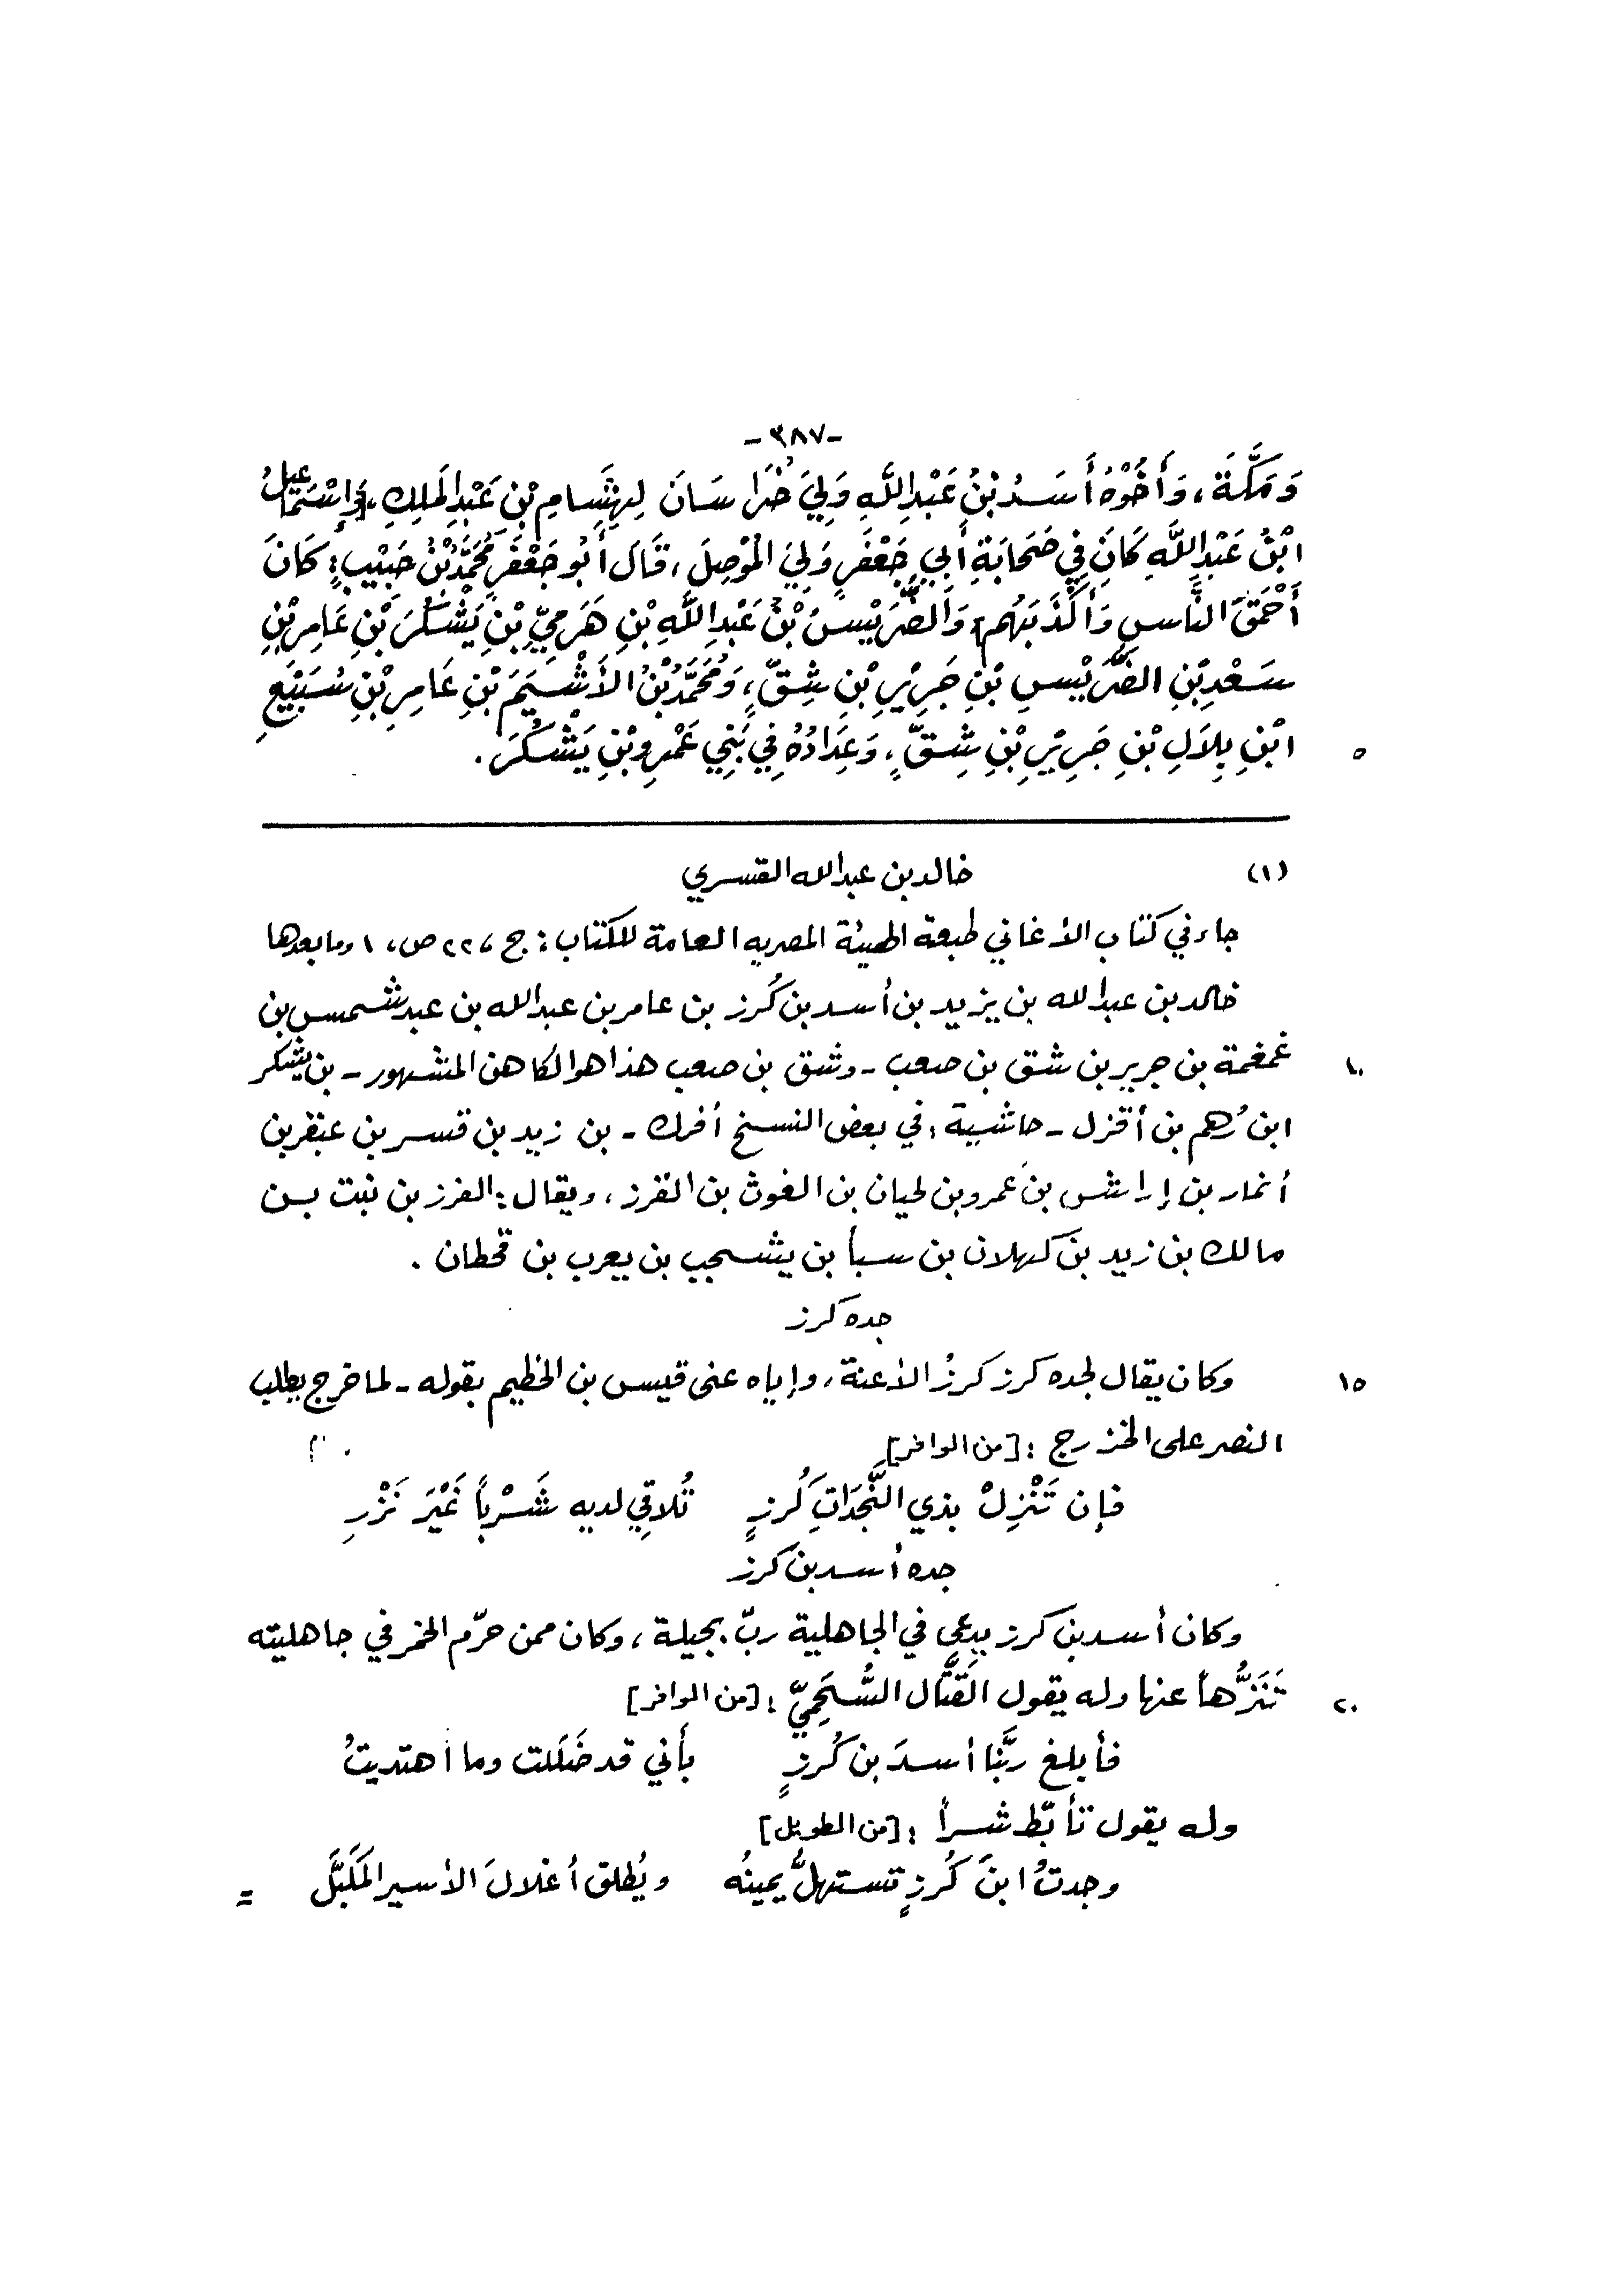 -٣٨٧-
وَمَكَّةَ، وَأَخُوْهُ أَسَدُ بْنُ عَبْدِ اللَّهِ وَلِيَ خُرَاسَانَ لِهِشَامِ بْنِ عَبْدِ المَلِكِ، [وَإِسْمَاعِيلُ
ابْنُ عَبْدِ اللَّهِ كَانَ فِي صَحَابَةِ أَبِي جَعْفَرٍ وَلِيَ المَوْصِلَ، قَالَ أَبُو جَعْفَرٍ مُحَمَّدُ بْنُ حَبِيْبٍ: كَانَ
أَحْمَقَ النَّاسِ وَأَكْذَبَهُم] وَالضُّرَيْسُ بْنُ عَبْدِ اللَّهِ بْنِ هَرَمِيِّ بْنِ يَشْكُرَ بْنِ عَامِرِ بْنِ
سَعْدِ بْنِ الضُّرَيْسِ بْنِ جَرِيْرِ بْنِ شِقٍّ، وَمُحَمَّدُ بْنُ الأَشْيَمَ بْنِ عَامِرِ بْنِ سُبَيْعِ
ابْنِ بِلاَلِ بْنِ جَرِيْرِ بْنِ شِقٍّ، وَعِدَادُهُ فِي بَنِي عَمْرِو بْنِ يَشْكُرَ.
٥
(١) خالد بن عبد الله القسري
جاء في كتاب الأغاني طبعة الهيئة المصريه العامة للكتاب: ج ٢٢، ص، ١ وما بعدها
خالد بن عبد الله بن يزيد بن أسد بن كُرز بن عامر بن عبد الله بن عبد شمس بن
غمغمة بن جرير بن شق بن صعب - وشق بن صعب هذا هو الكاهن المشهور - بن يشكر
١٠
ابن رُهم بن أقزل - حاشية: في بعض النسخ أفرك - بن زيد بن قسر بن عبقر بن
أنمار بن إراش بن عمرو بن لحيان بن الغوث بن الفرز، ويقال: الفرز بن نبت بن
مالك بن زيد بن كهلان بن سبأ بن يشجب بن يعرب بن قحطان.
جده كرز
وكان يقال لجده كرز كرزُ الأعنة، وإياه عنى قيس بن الخطيم بقوله - لما خرج يطلب
١٥
النصر على الخزرج: [من الوافر]
فإن تَنْزِلْ بذي النَّجَدَاتِ كُرزٍ تُلاقِي لديه شَرْباً غَيْرَ نَزْرِ
جده أسد بن كرز
وكان أسد بن كرز يدعى في الجاهلية ربّ بجيلة، وكان ممن حرّم الخمر في جاهليته
تَنَزُّهاً عنها وله يقول القَتَّال السُّحَمِيّ: [من الوافر]
٢٠
فأبلغ ربَّنا أسدَ بن كُرزٍ بأني قد ضَلَلت وما اهتديتُ
وله يقول تأبّط شراً: [من الطويل]
وجدتُ ابنَ كُرزٍ تستهلُّ يمينُه ويُطلق أغلالَ الأسير المكَبَّل =